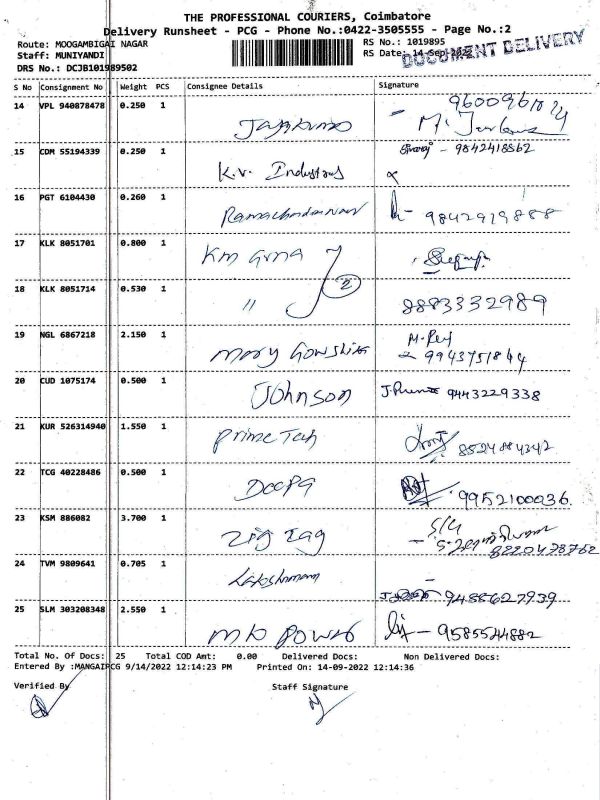 THE PROFESSIONAL COURIERS, Coimbatore
Delivery Runsheet - PCG - Phone No.:0422-3505555 - Page No.:2
Route: MOOGAMBIGAI NAGAR
RS No.: 1019895
Staff: MUNIYANDI
RS Date: 14-Sep-2022
DOCUMENT DELIVERY
DRS No.: DCJB101989502
S No Consignment No Weight PCS Consignee Details Signature
14 VPL 940878478 0.250 1
15 CDM 55194339 0.250 1 K.V. - 9842418562
16 PGT 6104430 0.260 1 Ramachandran - 9842919888
17 KLK 8051701 0.800 1 Km
18 KLK 8051714 0.530 1 " 2 8883332989
19 NGL 6867218 2.150 1 Mary M.
20 CUD 1075174 0.500 1 Johnson 9443229338
21 KUR 526314940 1.550 1 Prime Tech 8524884342
22 TCG 40228486 0.500 1 Deepa 9952100036.
23 KSM 886082 3.700 1 Zig Zag S/4 8220478762
24 TVM 9809641 0.705 1 Lakshmanan 9488627939
25 SLM 303208348 2.550 1 - 9585544882
Total No. Of Docs: 25 Total COD Amt: 0.00 Delivered Docs: Non Delivered Docs:
Entered By :MANGAIPCG 9/14/2022 12:14:23 PM Printed On: 14-09-2022 12:14:36
Verified By Staff Signature